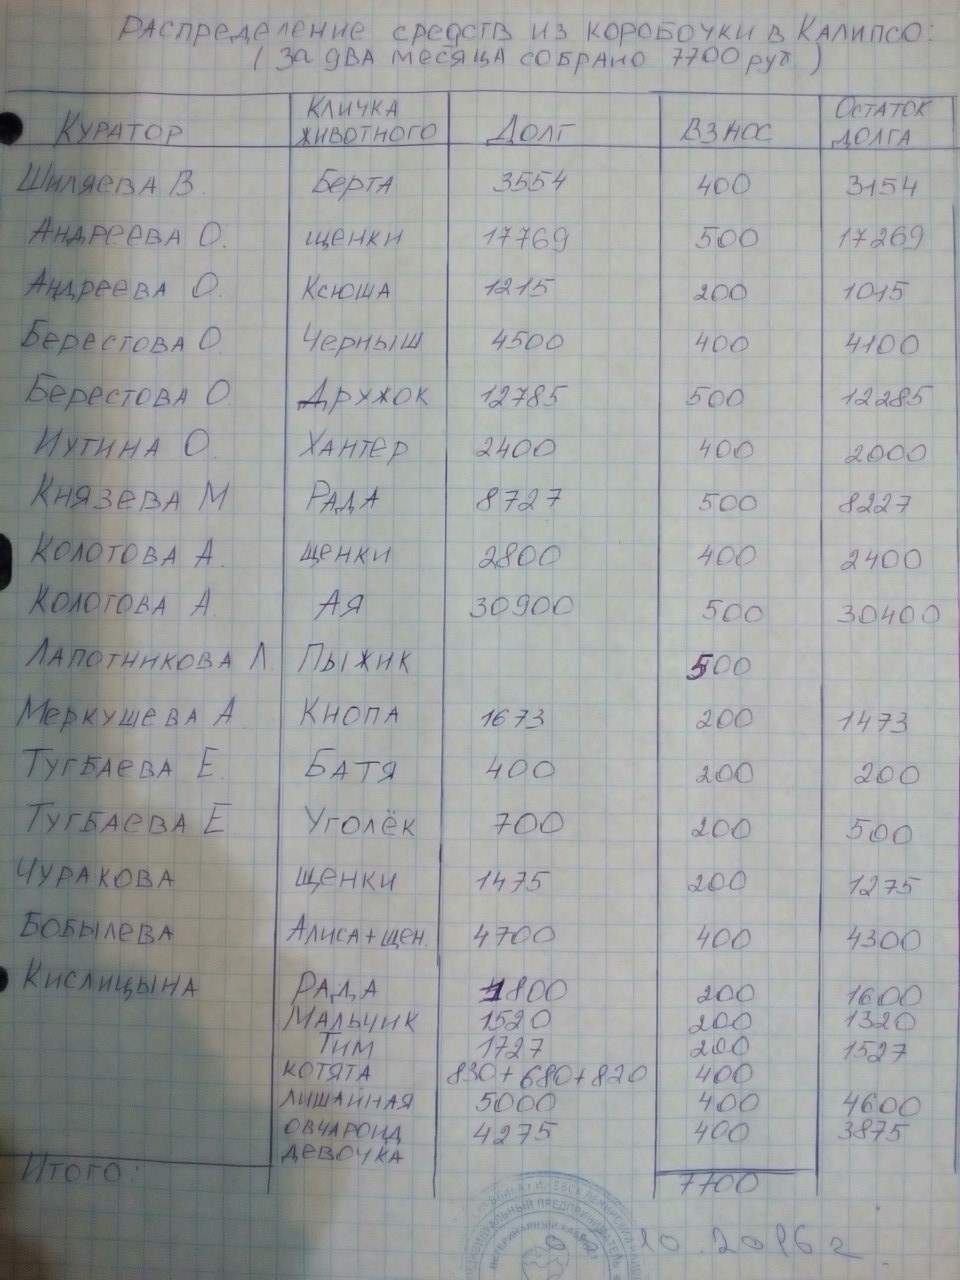 Распределение средств из коробочки в Калипсо:
(за два месяца собрано 7700 руб)
Куратор Кличка животного Долг Взнос Остаток долга
Шиляева В. Берта 3554 400 3154
Андреева О. щенки 17769 500 17269
Андреева О. Ксюша 1215 200 1015
Берестова О. Черныш 4500 400 4100
Берестова О Дружок 12785 500 12285
Иутина О. Хантер 2400 400 2000
Князева М Рада 8727 500 8227
Колотова А. щенки 2800 400 2400
Колотова А. Ая 30900 500 30400
Лапотникова Л Пыжик 500
Меркушева А Кнопа 1673 200 1473
Тугбаева Е. Батя 400 200 200
Тугбаева Е Уголёк 700 200 500
Чуракова щенки 1475 200 1275
Бобылева Алиса+щен. 4700 400 4300
Кислицына Рада 1800 200 1600
Мальчик 1520 200 1320
Тим 1727 200 1527
котята 830+680+820 400
лишайная 5000 400 4600
овчароид 4275 400 3875
девочка
Итого: 7700
предприниматель
10.2016 г